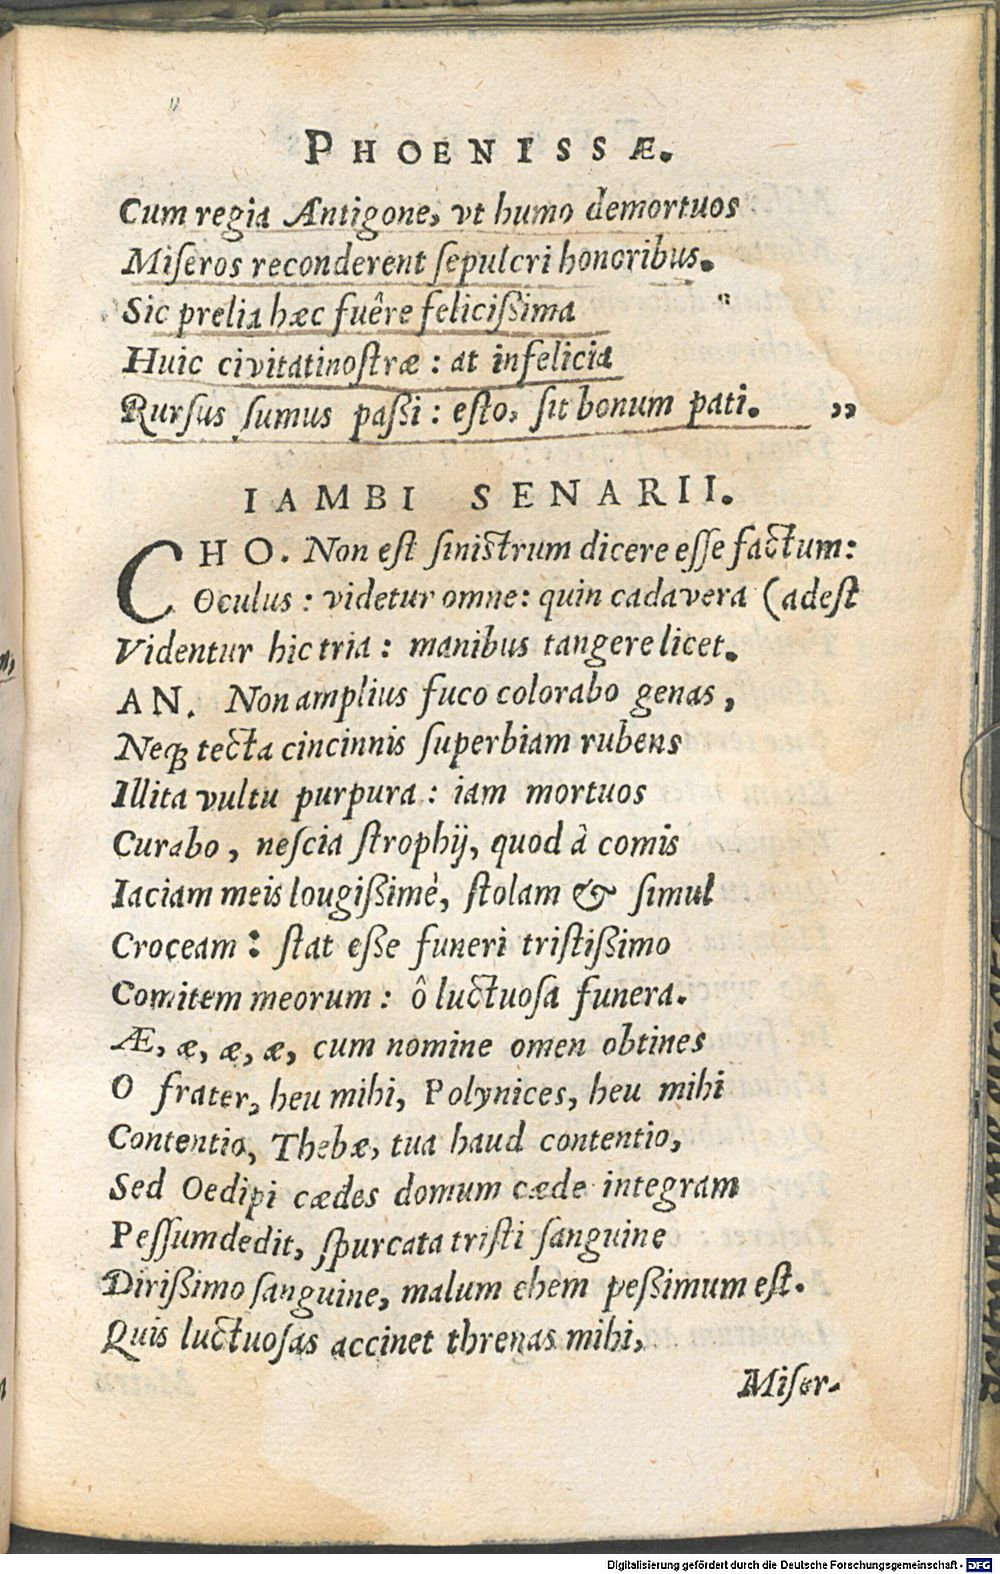 PHOENISSÆ.
Cum regia Antigone, vt humo demortuos
Miſeros reconderent ſepulcri honoribus.
Sic prelia hæc fuêre feliciſsima
Huic civitatinoſtræ : at infelicia
Rurſus ſumus paſsi : eſto, ſit bonum pati. „
IAMBI SENARII.
CHO. Non eſt ſiniſtrum dicere eſſe factum:
Oculus : videtur omne: quin cadavera (adeſt
Videntur hic tria : manibus tangere licet.
AN. Non amplius fuco colorabo genas,
Neq; tecta cincinnis ſuperbiam rubens
Illita vultu purpura : iam mortuos
Curabo, neſcia ſtrophij, quod à comis
Iaciam meis lougiſsimè, ſtolam & ſimul
Croceam : ſtat eſſe funeri triſtiſsimo
Comitem meorum : ô luctuoſa funera.
Æ, æ, æ, æ, cum nomine omen obtines
O frater, heu mihi, Polynices, heu mihi
Contentio, Thebæ, tua haud contentio,
Sed Oedipi cædes domum cæde integram
Peſſumdedit, ſpurcata triſti ſanguine
Diriſsimo ſanguine, malum ehem peſsimum eſt.
Quis luctuoſas accinet threnas mihi,
Miſer-
Digitalisierung gefördert durch die Deutsche Forschungsgemeinschaft - DFG